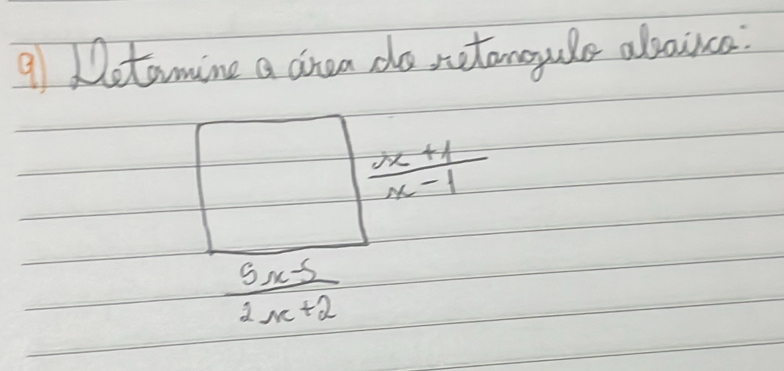 9) Determine a área do retangulo abaixo:
x+1
x-1
5x-5
2x+2